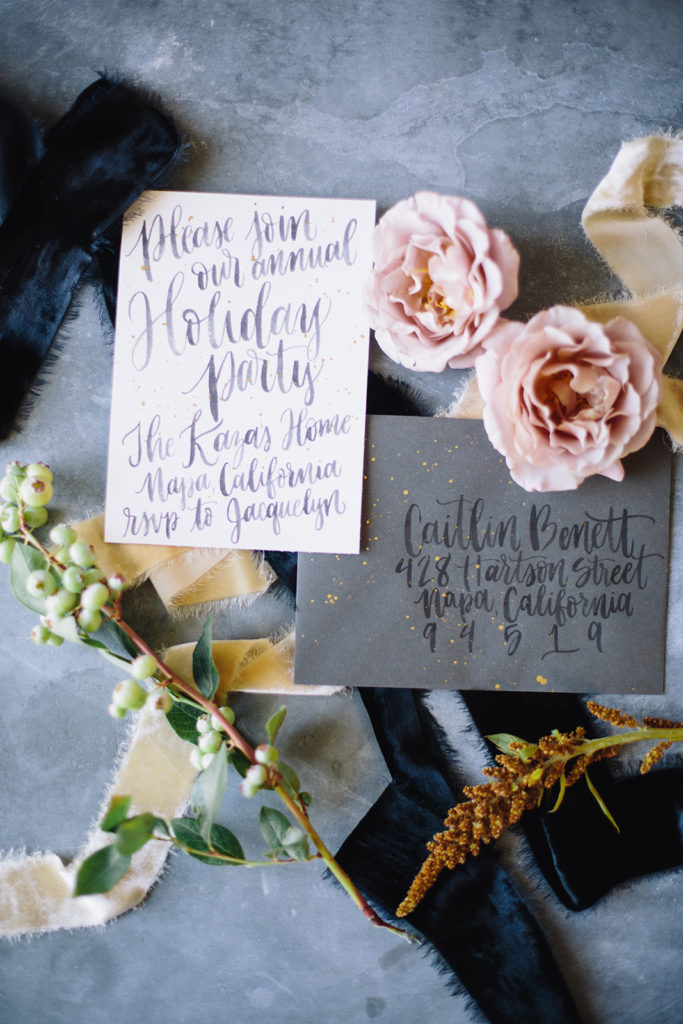 Please join
our annual
Holiday
party
The Kazas Home
Napa California
rsvp to Jacquelyn
Caitlin Benett
428 Hartson Street
Napa, California
9 4 5 1 9